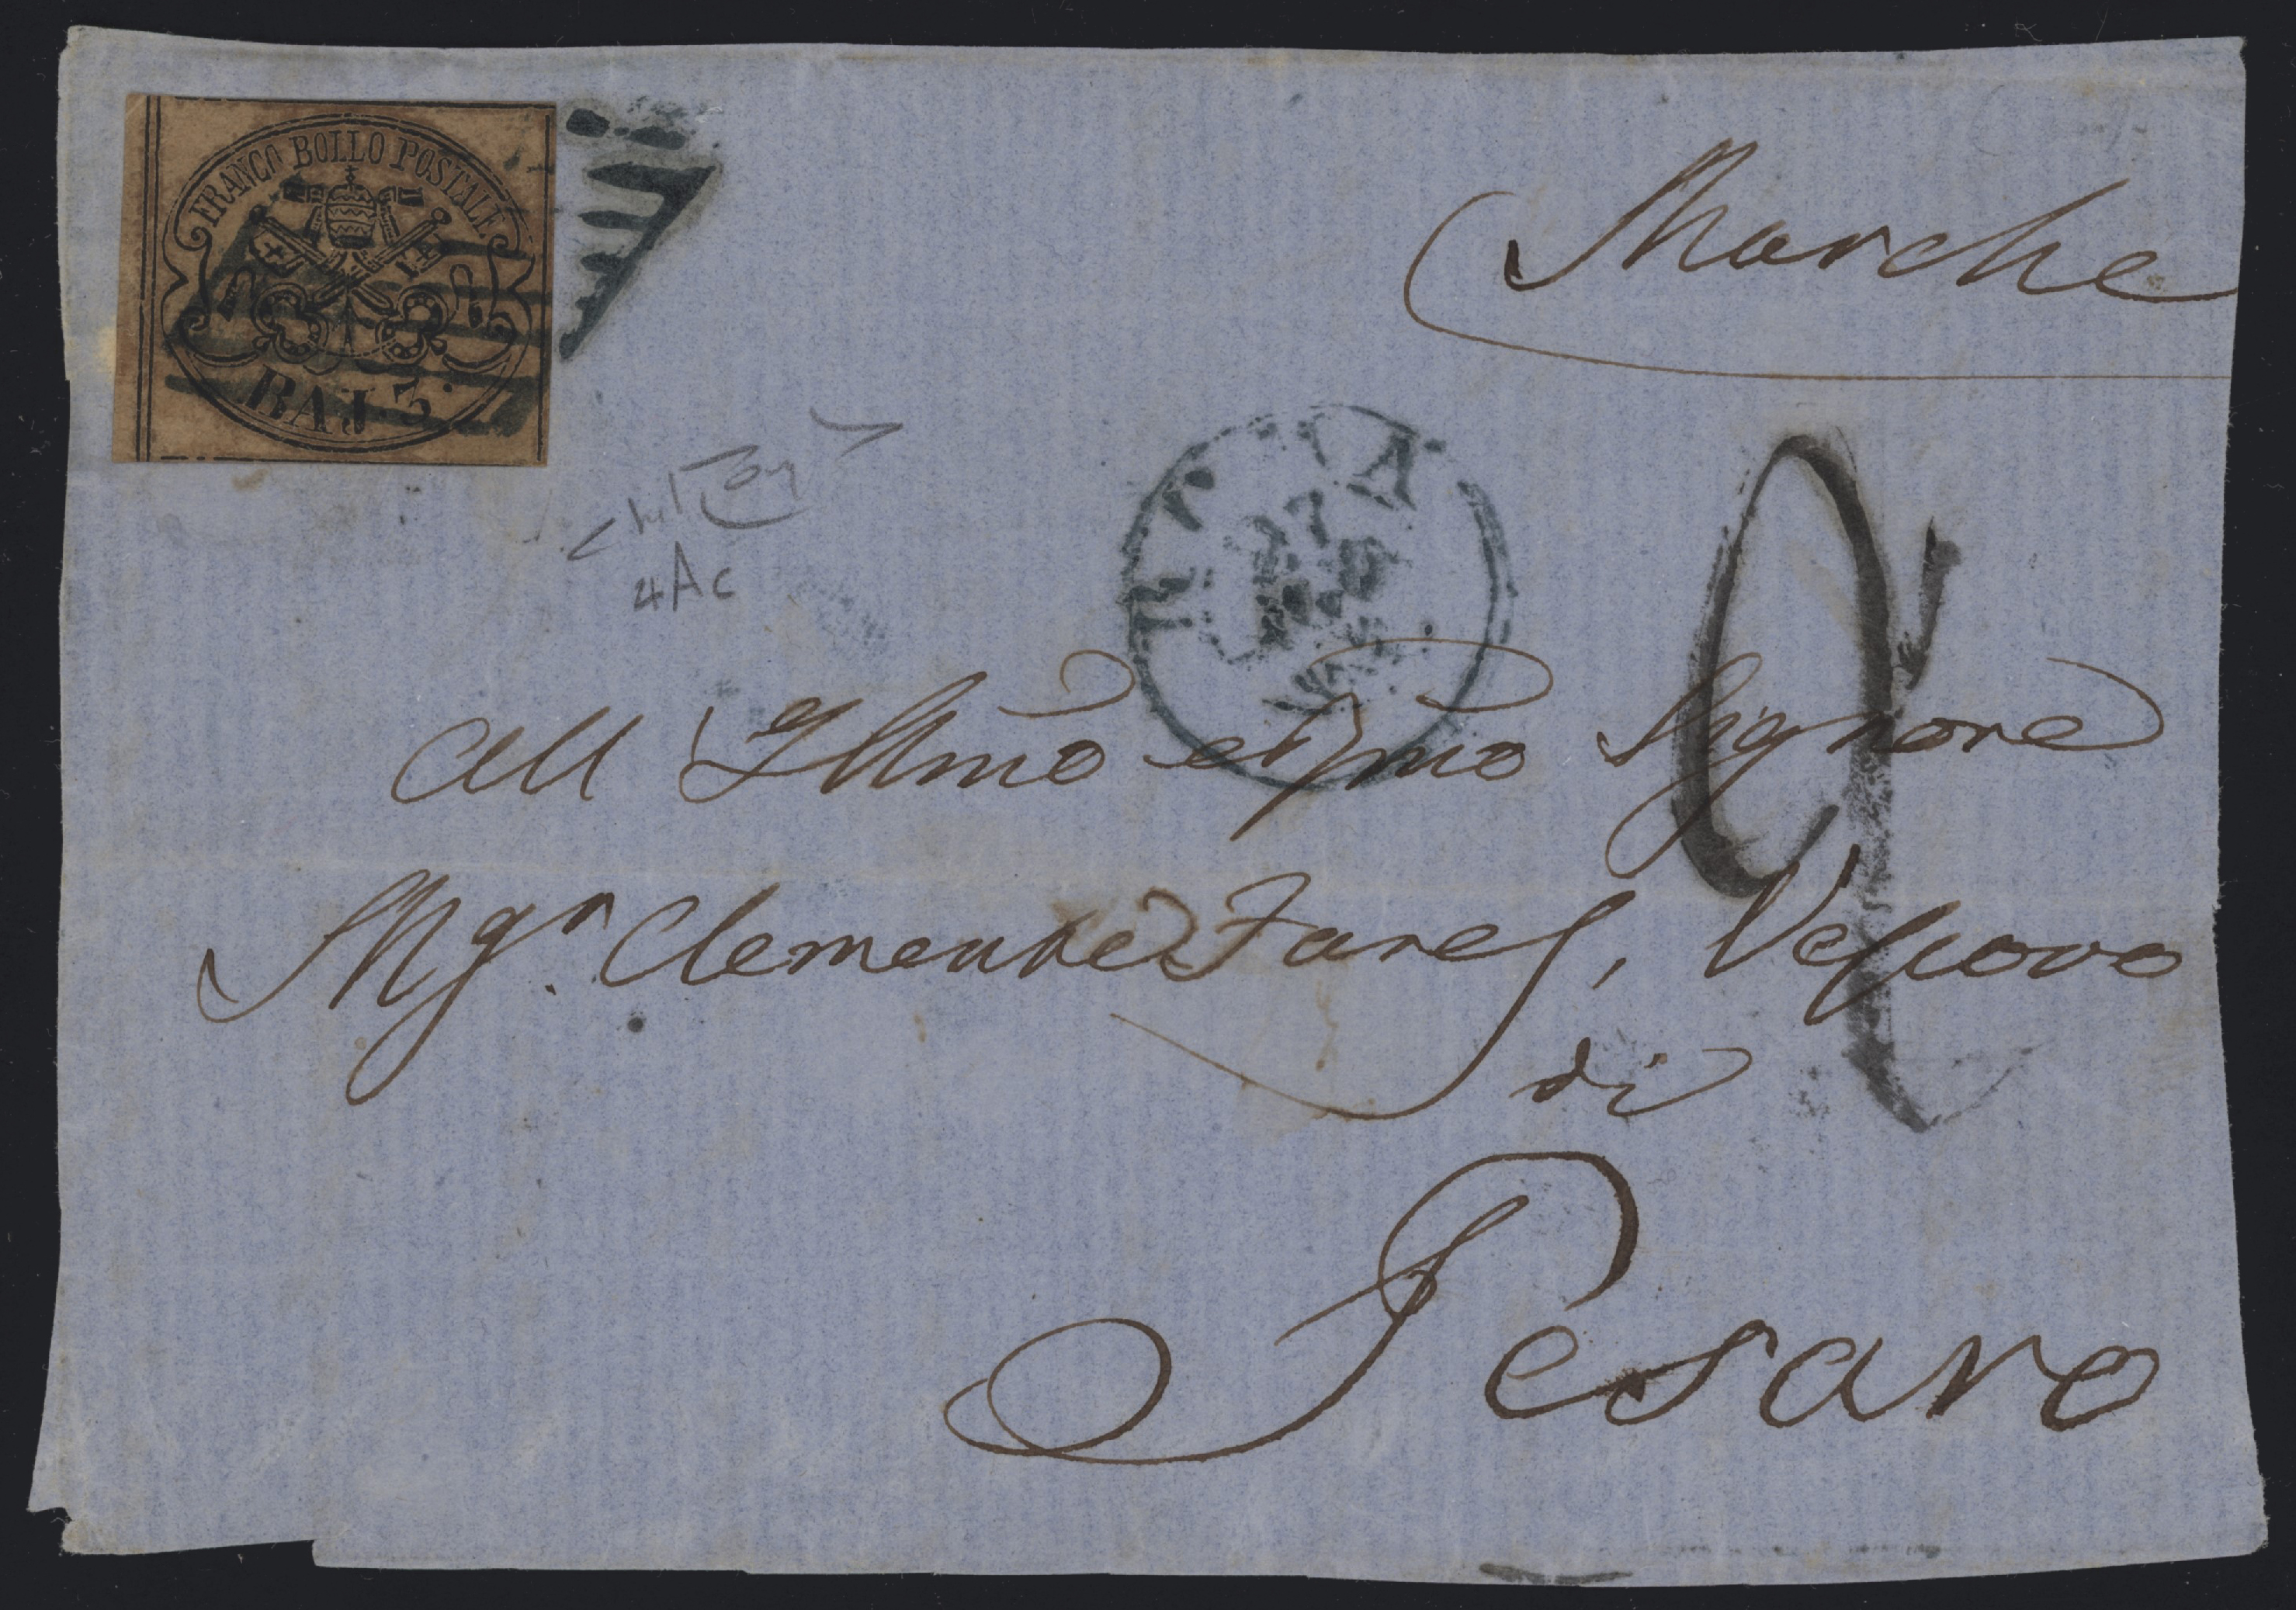 FRANCO BOLLO POSTALE
BAJ. 3.
Marche
27
4Ac
2
All Illmo e Rmo Signore
Mgr. Clemente Fares, Vescovo
di
Pesaro